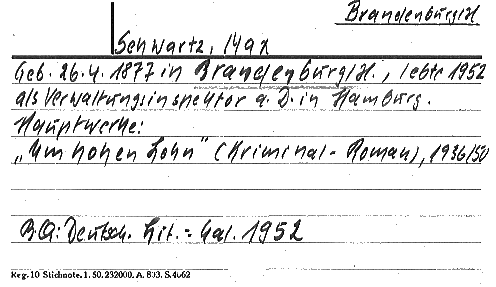 Brandenburg/H
Schwartz, Max
Geb. 26.4.1877 in Brandenburg/H., lebte 1952
als Verwaltungsinspektor a. D. in Hamburg.
Hauptwerke:
„Um hohen Lohn" (Kriminal-Roman), 1936/50
B.Q: Deutsch. Lit.-Kal. 1952
Reg. 10 Stichnote. 1. 50. 232000. A. 803. S. 4062